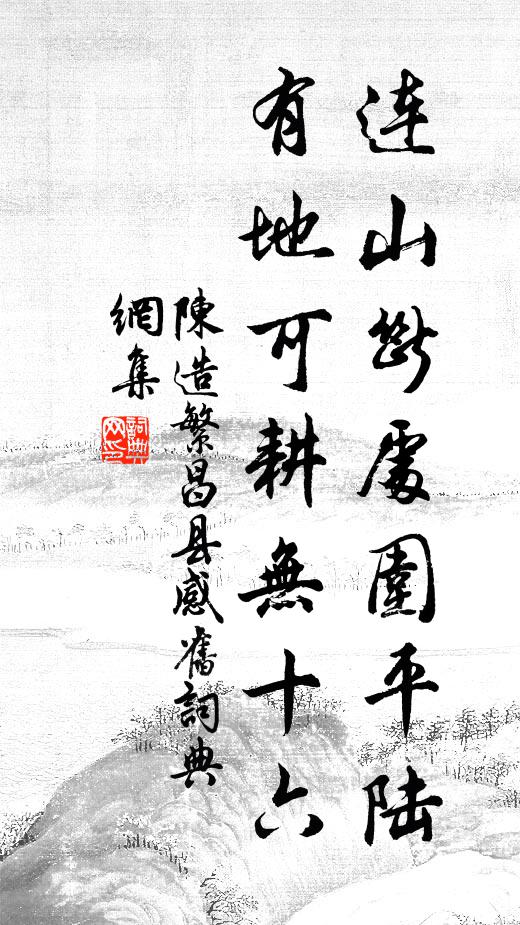 连山断處圍平陆
有地可耕無十六
陳造繁昌县感舊詞典
網集
詞典